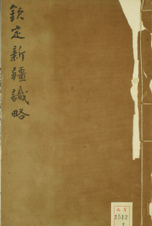 欽定新疆識略
2512